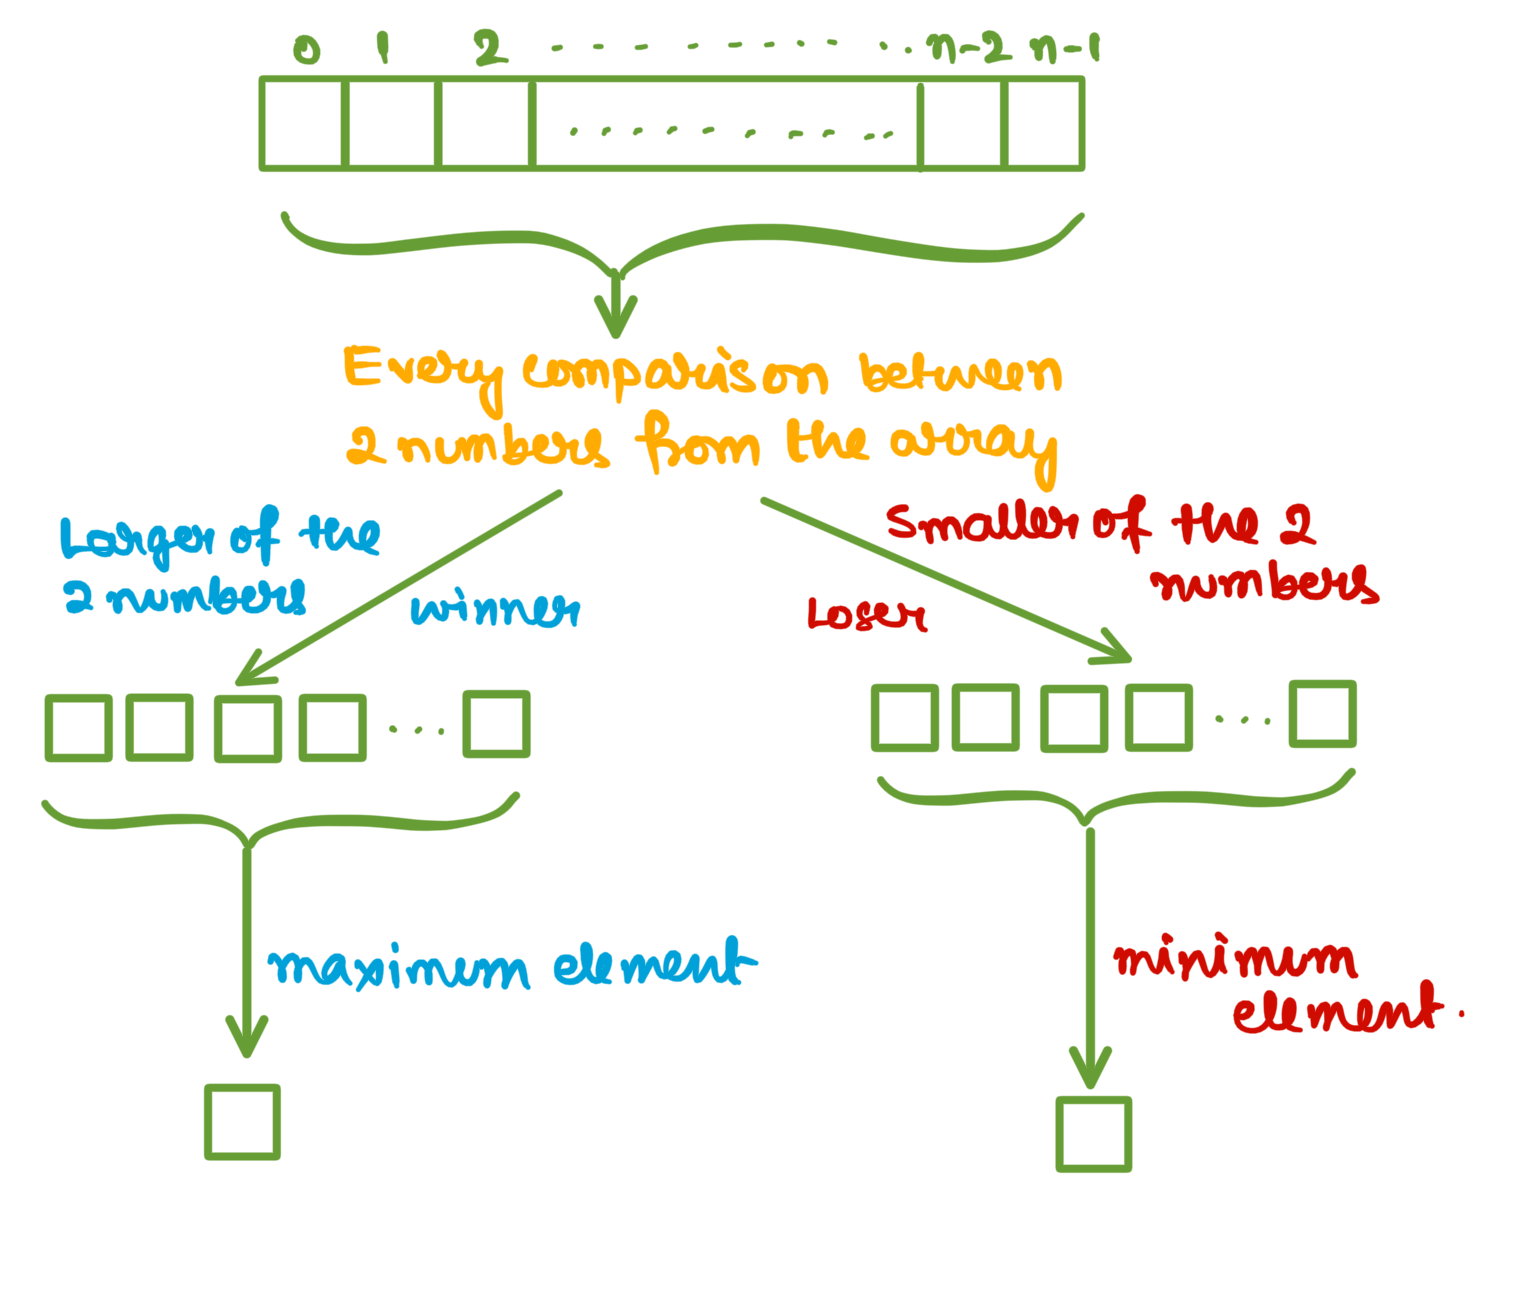 0 1 2 - - - - - - - - - . n-2 n-1
. . . . . . . . . . .
Every comparison between
2 numbers from the array
Larger of the
2 numbers
winner
Smaller of the 2
numbers
Loser
. . .
. . .
maximum element
minimum
element.